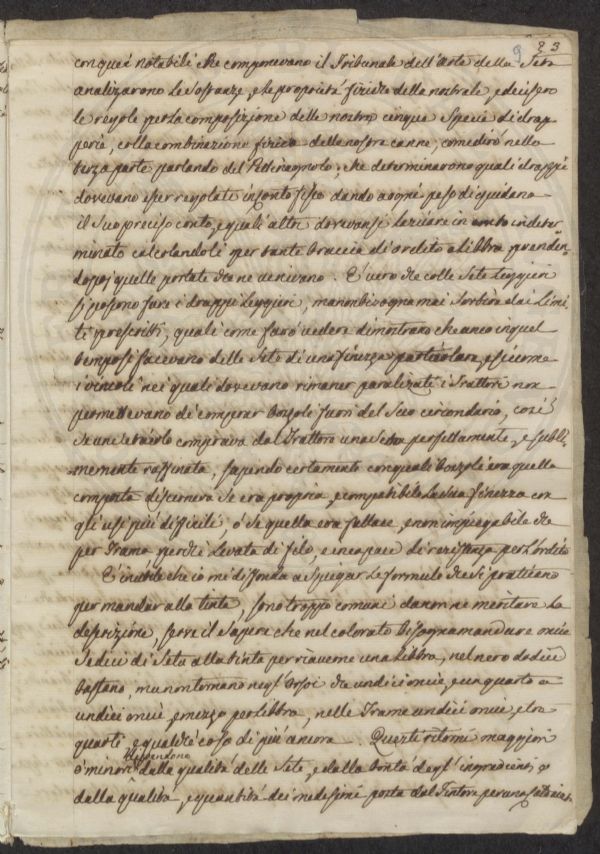 9 23
con quei notabili che componevano il Tribunale dell'Arte della Seta
analizarono le Sostanze, e le proprietà fisiche della nostrale, e decisero
le regole per la composizione delle nostre cinque Specie di drap-
peria, colla combinazione fisica delle nostre canne, come dirò nella
terza parte parlando del Pettinagnolo; che determinarono quali drappi
dovevano esser regolati in conto fisso dando a ogni peso di quidana
il Suo preciso conto, e quali altri dovevansi lasciare in conto indeter-
minato calcolandoli per tante braccia di ordito a Libbra prenden-
dosi quelle portate che ne venivano. È vero che colle Sete Leggieri
si possono fare i drappi Leggieri, ma non bisogna mai Sortire dai Limi-
ti prescritti, quali come farò vedere dimostrano che anco in quel
tempo si facevano delle Sete di una finezza particolare, e siccome
i vincoli nei quali dovevano rimaner paralizati i Trattori non
permettevano di comprar bozzoli fuori del Suo circondario, così
Se un Setaiolo comprava dal Trattore una Seta perfettamente, e subli-
memente raffinata, sapendo certamente con quali bozzoli era quella
composta discerneva Se era propria, e compatibile la sua finezza con
gl'usi più difficili, ò Se quella era fallace, e non impiegabile che
per Trama perchè Levata di filo, e incapace di resistenza per l'ordito
È inutile che io mi diffonda a Spiegar le formule che si praticano
per mandar alla tinta, sono troppo comuni da non ne meritare la
descrizione, serve il Sapere che nel colorato bisogna mandare oncie
Sedici di Seta alla tinta per riaverne una Libbra, nel nero dodici
bastano, ma non tornano negl'Orsoi che undici oncie, e un quarto a
undici oncie, e mezzo per Libbra, nelle Trame undici oncie, e tre
quarti, e qualche cosa di più ancora. Questi ritorni maggiori
dependono
ò minori dalla qualità delle Sete, e dalla bontà degl'ingredienti, e
dalla qualità, e quantità dei medesimi posta dal Tintore per una